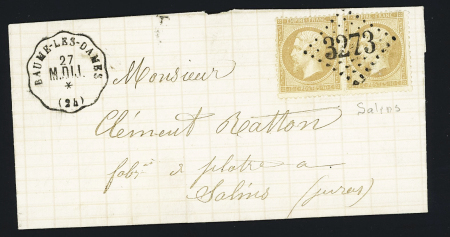 BAUME-LES-DAMES
27
M.DIJ.
*
(24)
3273
Salins
Monsieur
Clément Ratton
fabt de plâtre a
Salins (Jura)